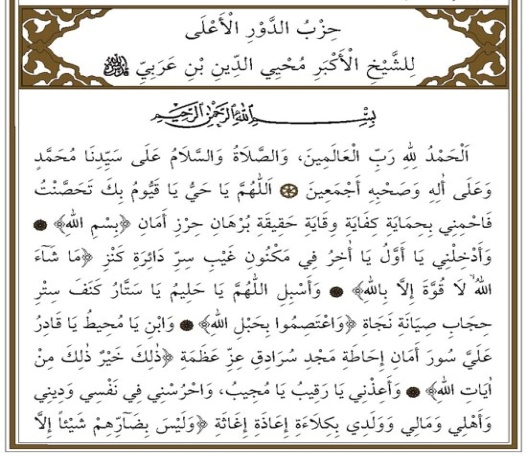 حِزْبُ الدَّوْرِ الْأَعْلَى
لِلشَّيْخِ الْأَكْبَرِ مُحْيِي الدِّينِ بْنِ عَرَبِيِّ
بِسْمِ اللَّهِ الرَّحْمَنِ الرَّحِيمِ
اَلْحَمْدُ لِلهِ رَبِّ الْعَالَمِينَ، وَالصَّلَاةُ وَالسَّلَامُ عَلَى سَيِّدِنَا مُحَمَّدٍ
وَعَلَى أٰلِهِ وَصَحْبِهِ أَجْمَعِينَ ۞ اَللّٰهُمَّ يَا حَيُّ يَا قَيُّومُ بِكَ تَحَصَّنْتُ
فَاحْمِنِي بِحِمَايَةِ كِفَايَةِ وِقَايَةِ حَقِيقَةِ بُرْهَانِ حِرْزِ أَمَانِ ﴿بِسْمِ اللهِ﴾ ۞
وَأَدْخِلْنِي يَا أَوَّلُ يَا أٰخِرُ فِي مَكْنُونِ غَيْبِ سِرِّ دَائِرَةِ كَنْزِ ﴿مَا شَآءَ
اللهُ لَا قُوَّةَ إِلَّا بِاللهِ﴾ ۞ وَأَسْبِلِ اللّٰهُمَّ يَا حَلِيمُ يَا سَتَّارُ كَنَفَ سِتْرِ
حِجَابِ صِيَانَةِ نَجَاةِ ﴿وَاعْتَصِمُوا بِحَبْلِ اللهِ﴾ ۞ وَابْنِ يَا مُحِيطُ يَا قَادِرُ
عَلَيَّ سُورَ أَمَانِ إِحَاطَةِ مَجْدِ سُرَادِقِ عِزِّ عَظَمَةِ ﴿ذٰلِكَ خَيْرٌ ذٰلِكَ مِنْ
اٰيَاتِ اللهِ﴾ ۞ وَأَعِذْنِي يَا رَقِيبُ يَا مُجِيبُ، وَاحْرُسْنِي فِي نَفْسِي وَدِينِي
وَأَهْلِي وَمَالِي وَوَلَدِي بِكِلَاءَةِ إِعَاذَةِ إِغَاثَةِ ﴿وَلَيْسَ بِضَآرِّهِمْ شَيْئًا إِلَّا